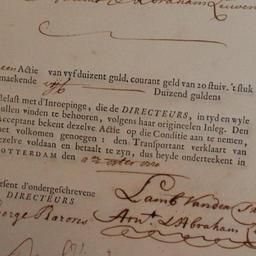 Abraham Leuwen
Actie van vyf duizent guld. courant geld van 20 stuiv. 't stuk
makende vijf Duizend guldens
Belast met d'Inroepinge, die de DIRECTEURS, in tyd en wyle
sullen vinden te behooren, volgens haar origineelen Inleg. Den
Acceptant bekent dezelve Actie op die Conditie aan te nemen,
met volkomen genoegen: den Transportant verklaart van
dezelve voldaan en betaalt te zyn, dus beyde onderteekent in
ROTTERDAM den
present d'ondergeschrevene
DIRECTEURS
Lamb Vanden
George Barons
Arnt. d'Abraham